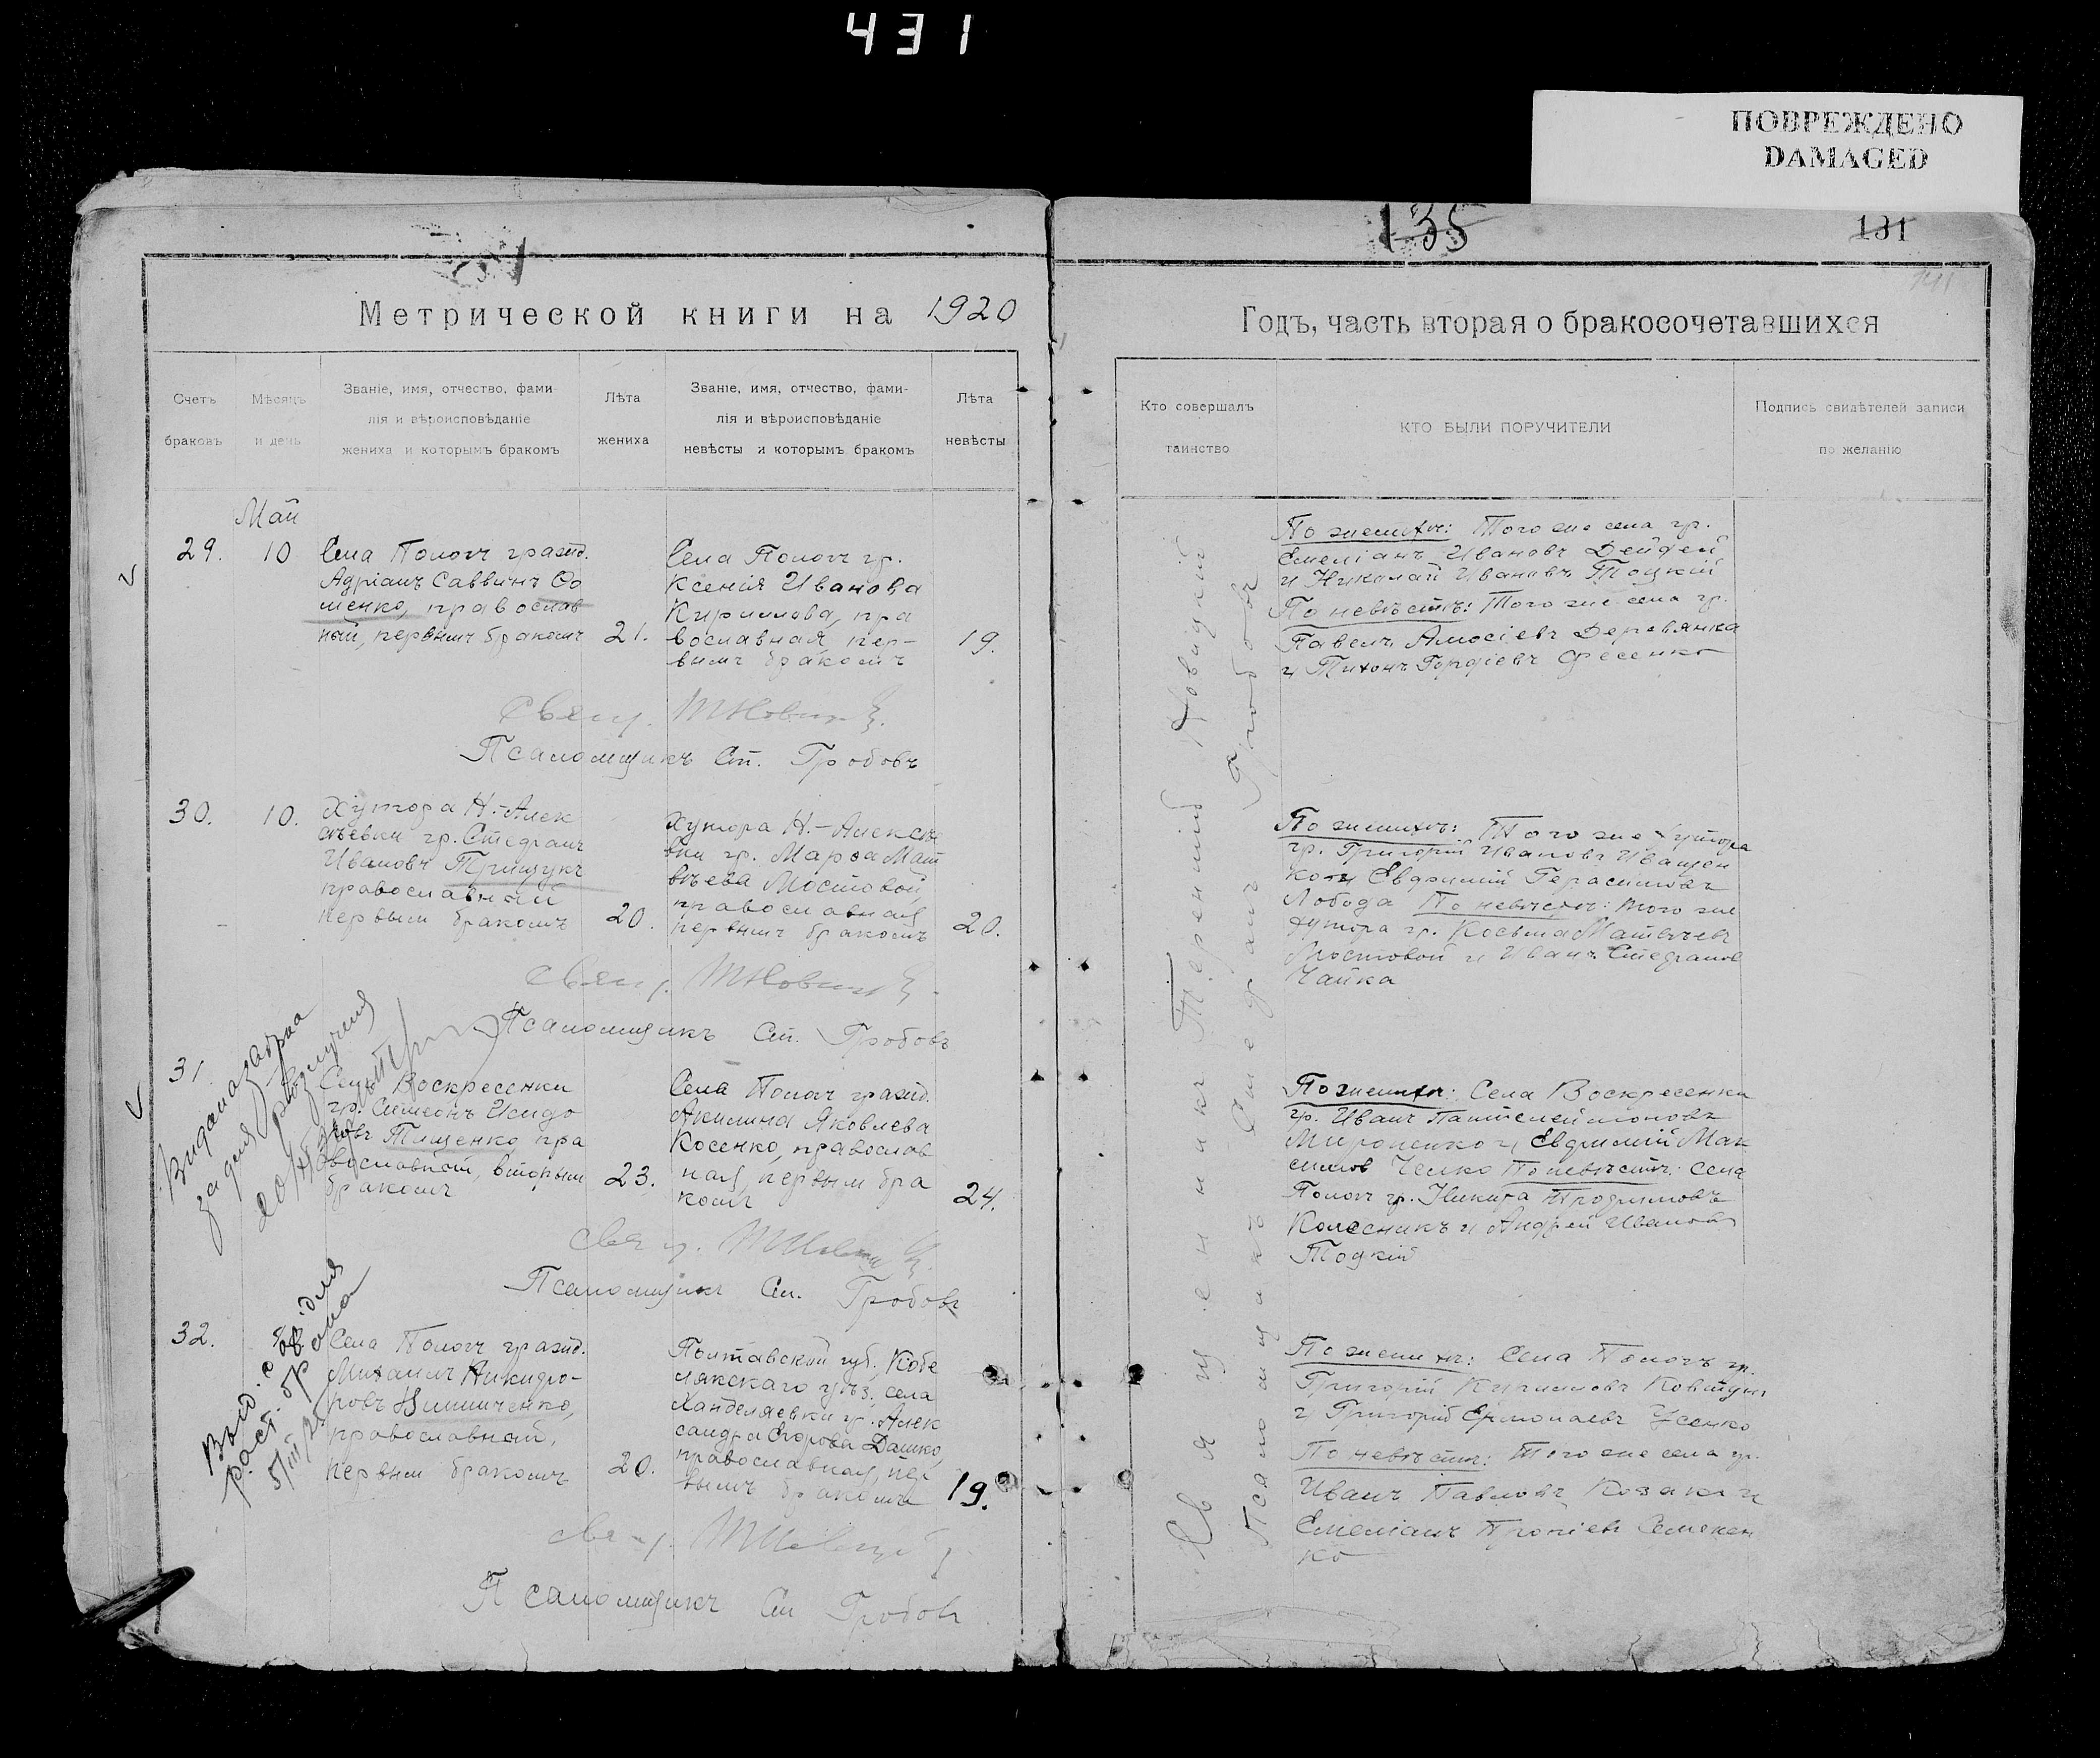 431
ПОВРЕЖДЕНО
DAMAGED
135
131
Метрической книги на 1920
Годъ, часть вторая о бракосочетавшихся
Счетъ браковъ
Мѣсяцъ и день
Званіе, имя, отчество, фами-
лія и вѣроисповѣданіе
жениха и которымъ бракомъ
Лѣта жениха
Званіе, имя, отчество, фами-
лія и вѣроисповѣданіе
невѣсты и которымъ бракомъ
Лѣта невѣсты
Кто совершалъ таинство
КТО БЫЛИ ПОРУЧИТЕЛИ
Подпись свидѣтелей записи
по желанію
Май
29. 10
Села Пологъ гражд.
Адріанъ Саввинъ Ѳо
менко, православ
ный, первымъ бракомъ
21.
Села Пологъ гр.
Ксенія Иванова
Кириллова, пра
вославная, пер-
вымъ бракомъ
19.
По женихѣ: Того же села гр.
Емеліанъ Ивановъ Дейней
и Николай Ивановъ Тоцкій
По невѣстѣ: Того же села гр.
Павелъ Амосіевъ Деревянка
и Тихонъ Гордіевъ Фесенко
Свящ. Т Новиц
Псаломщикъ Ст. Гробовъ
30. 10.
Хутора Н.-Алек
сѣевки гр. Стефанъ
Ивановъ Грищукъ
православный
первымъ бракомъ
20.
Хутора Н.-Алексѣе
вки гр. Марѳа Мат
вѣева Мостовой,
православная
первымъ бракомъ
20.
По женихѣ: Того же хутора
гр. Григорій Ивановъ Иващен
ко и Евфимій Герасимовъ
Лобода По невѣстѣ: того же
хутора гр. Косьма Матвѣевъ
Мостовой и Иванъ Стефанов
Чайка
Свящ. Т Новиц
Псаломщикъ Ст. Гробовъ
31.
Села Воскресенки
гр. Симеонъ Исидо
ровъ Тищенко пра
вославный, вторымъ
бракомъ
23.
Села Пологъ гражд.
Акилина Яковлева
Косенко, православ
ная, первымъ бра
комъ
24.
По женихѣ: Села Воскресенки
гр. Иванъ Пантелеймоновъ
Мироненко и Евфимій Мак
симов Чепко По невѣстѣ: села
Пологъ гр. Никита Трофимовъ
Колесникъ и Андрей Ивановъ
Тоцкій
Свящ.
Псаломщикъ Ст. Гробовъ
32.
Села Пологъ гражд.
Михаилъ Никифо-
ровъ
православный,
первымъ бракомъ
20.
Полтавской губ. Кобе
лякскаго уѣз. села
Ханделеевки гр. Алек
сандра Егорова Дашко,
православная, пер
вымъ бракомъ
19.
По женихѣ: Села Пологъ гр.
Григорій Кирилловъ Ковтун
и Григорій Ермолаевъ Усенко
По невѣстѣ: Того же села гр.
Иванъ Павловъ Козакъ и
Емеліанъ Прокіевъ Семекен
ко
Свящ.
Псаломщикъ Ст Гробовъ
Священникъ Терентій Новицкій
Псаломщикъ Стефанъ Гробовъ
Видана
для
Выд. для
раст. брака